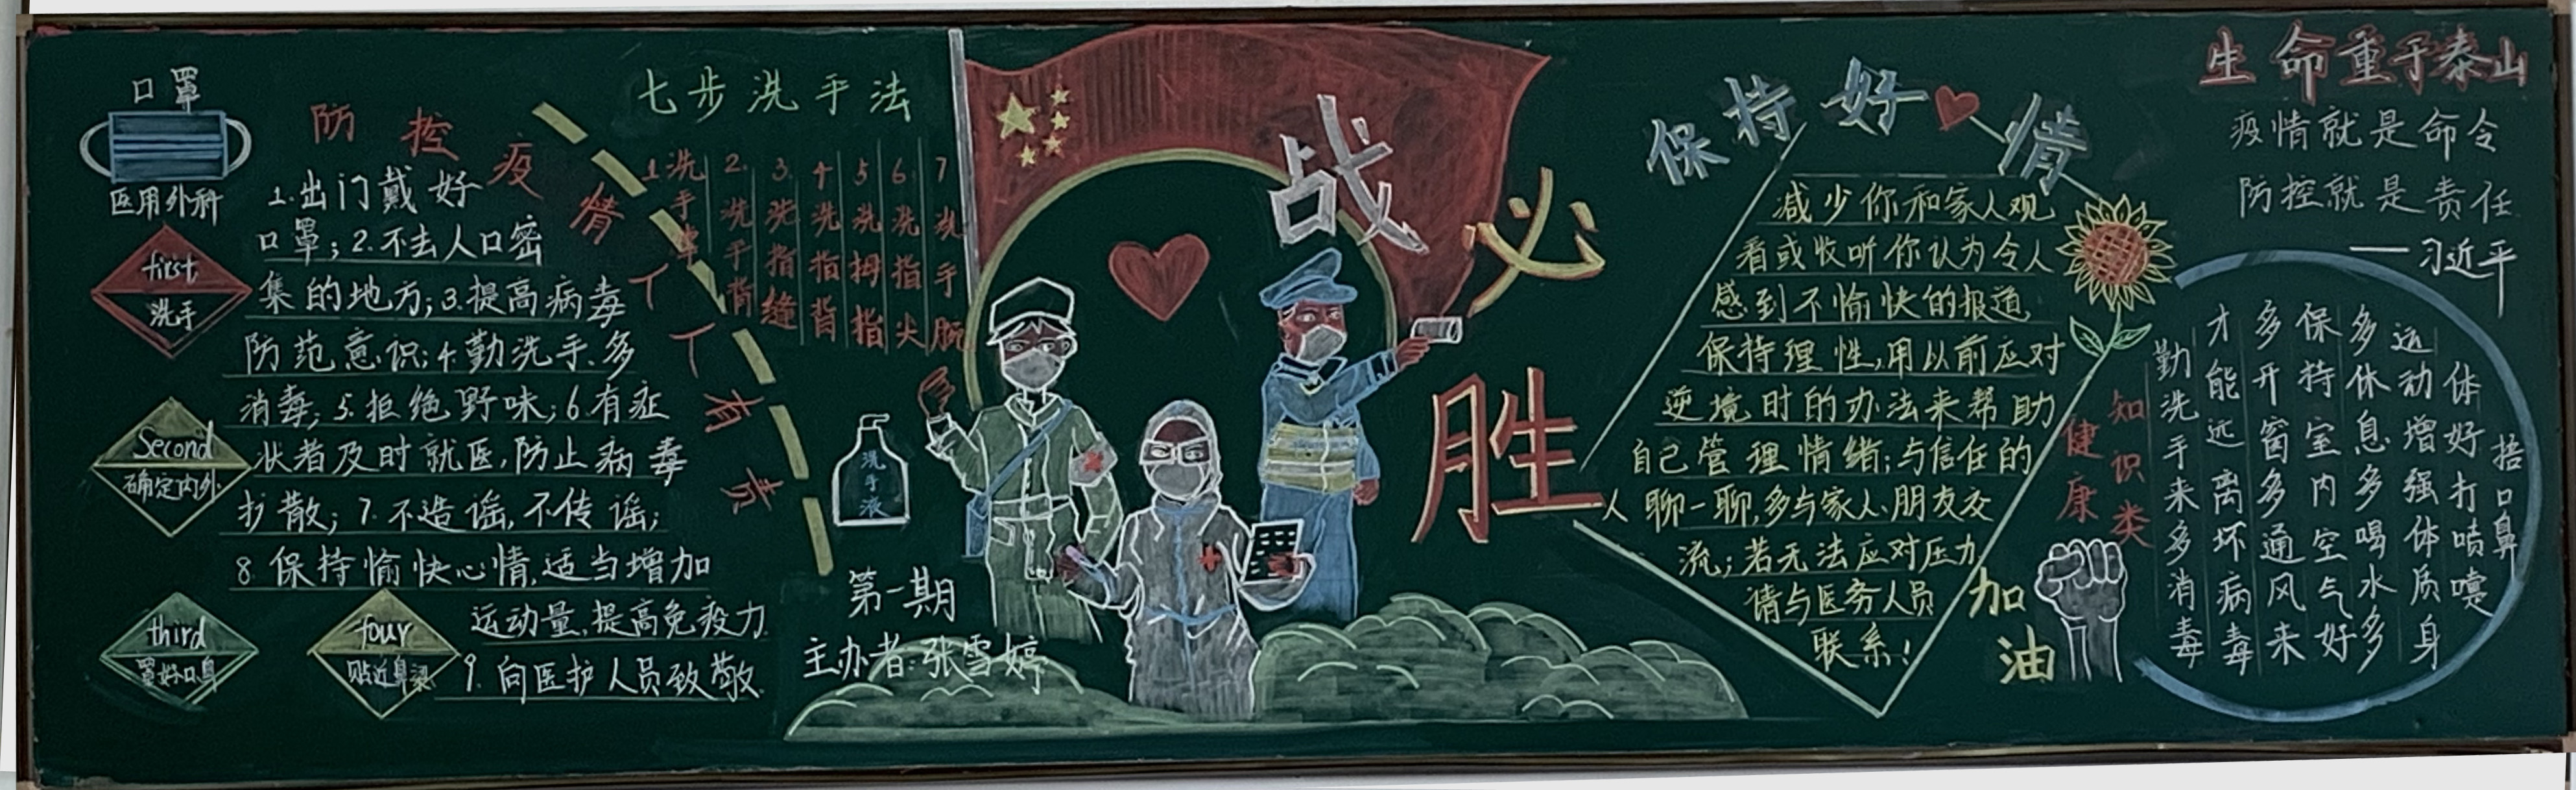 口罩
医用外科
first
洗手
Second
确定内外
third
罩好口鼻
four
贴近鼻梁
防控疫情人人有责
1.出门戴好
口罩；2.不去人口密
集的地方；3.提高病毒
防范意识；4.勤洗手、多
消毒；5.拒绝野味；6.有症
状者及时就医，防止病毒
扩散；7.不造谣，不传谣；
8.保持愉快心情，适当增加
运动量，提高免疫力
9.向医护人员致敬
七步洗手法
1洗手掌
2.洗手背
3.洗指缝
4洗指背
5洗拇指
6.洗指尖
7洗手腕
洗手液
第一期
主办者：张雪婷
战必胜
保持好情
减少你和家人观
看或收听你认为令人
感到不愉快的报道
保持理性，用以前应对
逆境时的办法来帮助
自己管理情绪；与信任的
人聊一聊，多与家人、朋友交
流；若无法应对压力
请与医务人员
联系！
加油
生命重于泰山
疫情就是命令
防控就是责任
——习近平
健康
知识类
勤洗手来多消毒
才能远离坏病毒
多开窗多通风来
保持室内空气好
多休息多喝水多
运动增强体质身
体好打喷嚏
捂口鼻